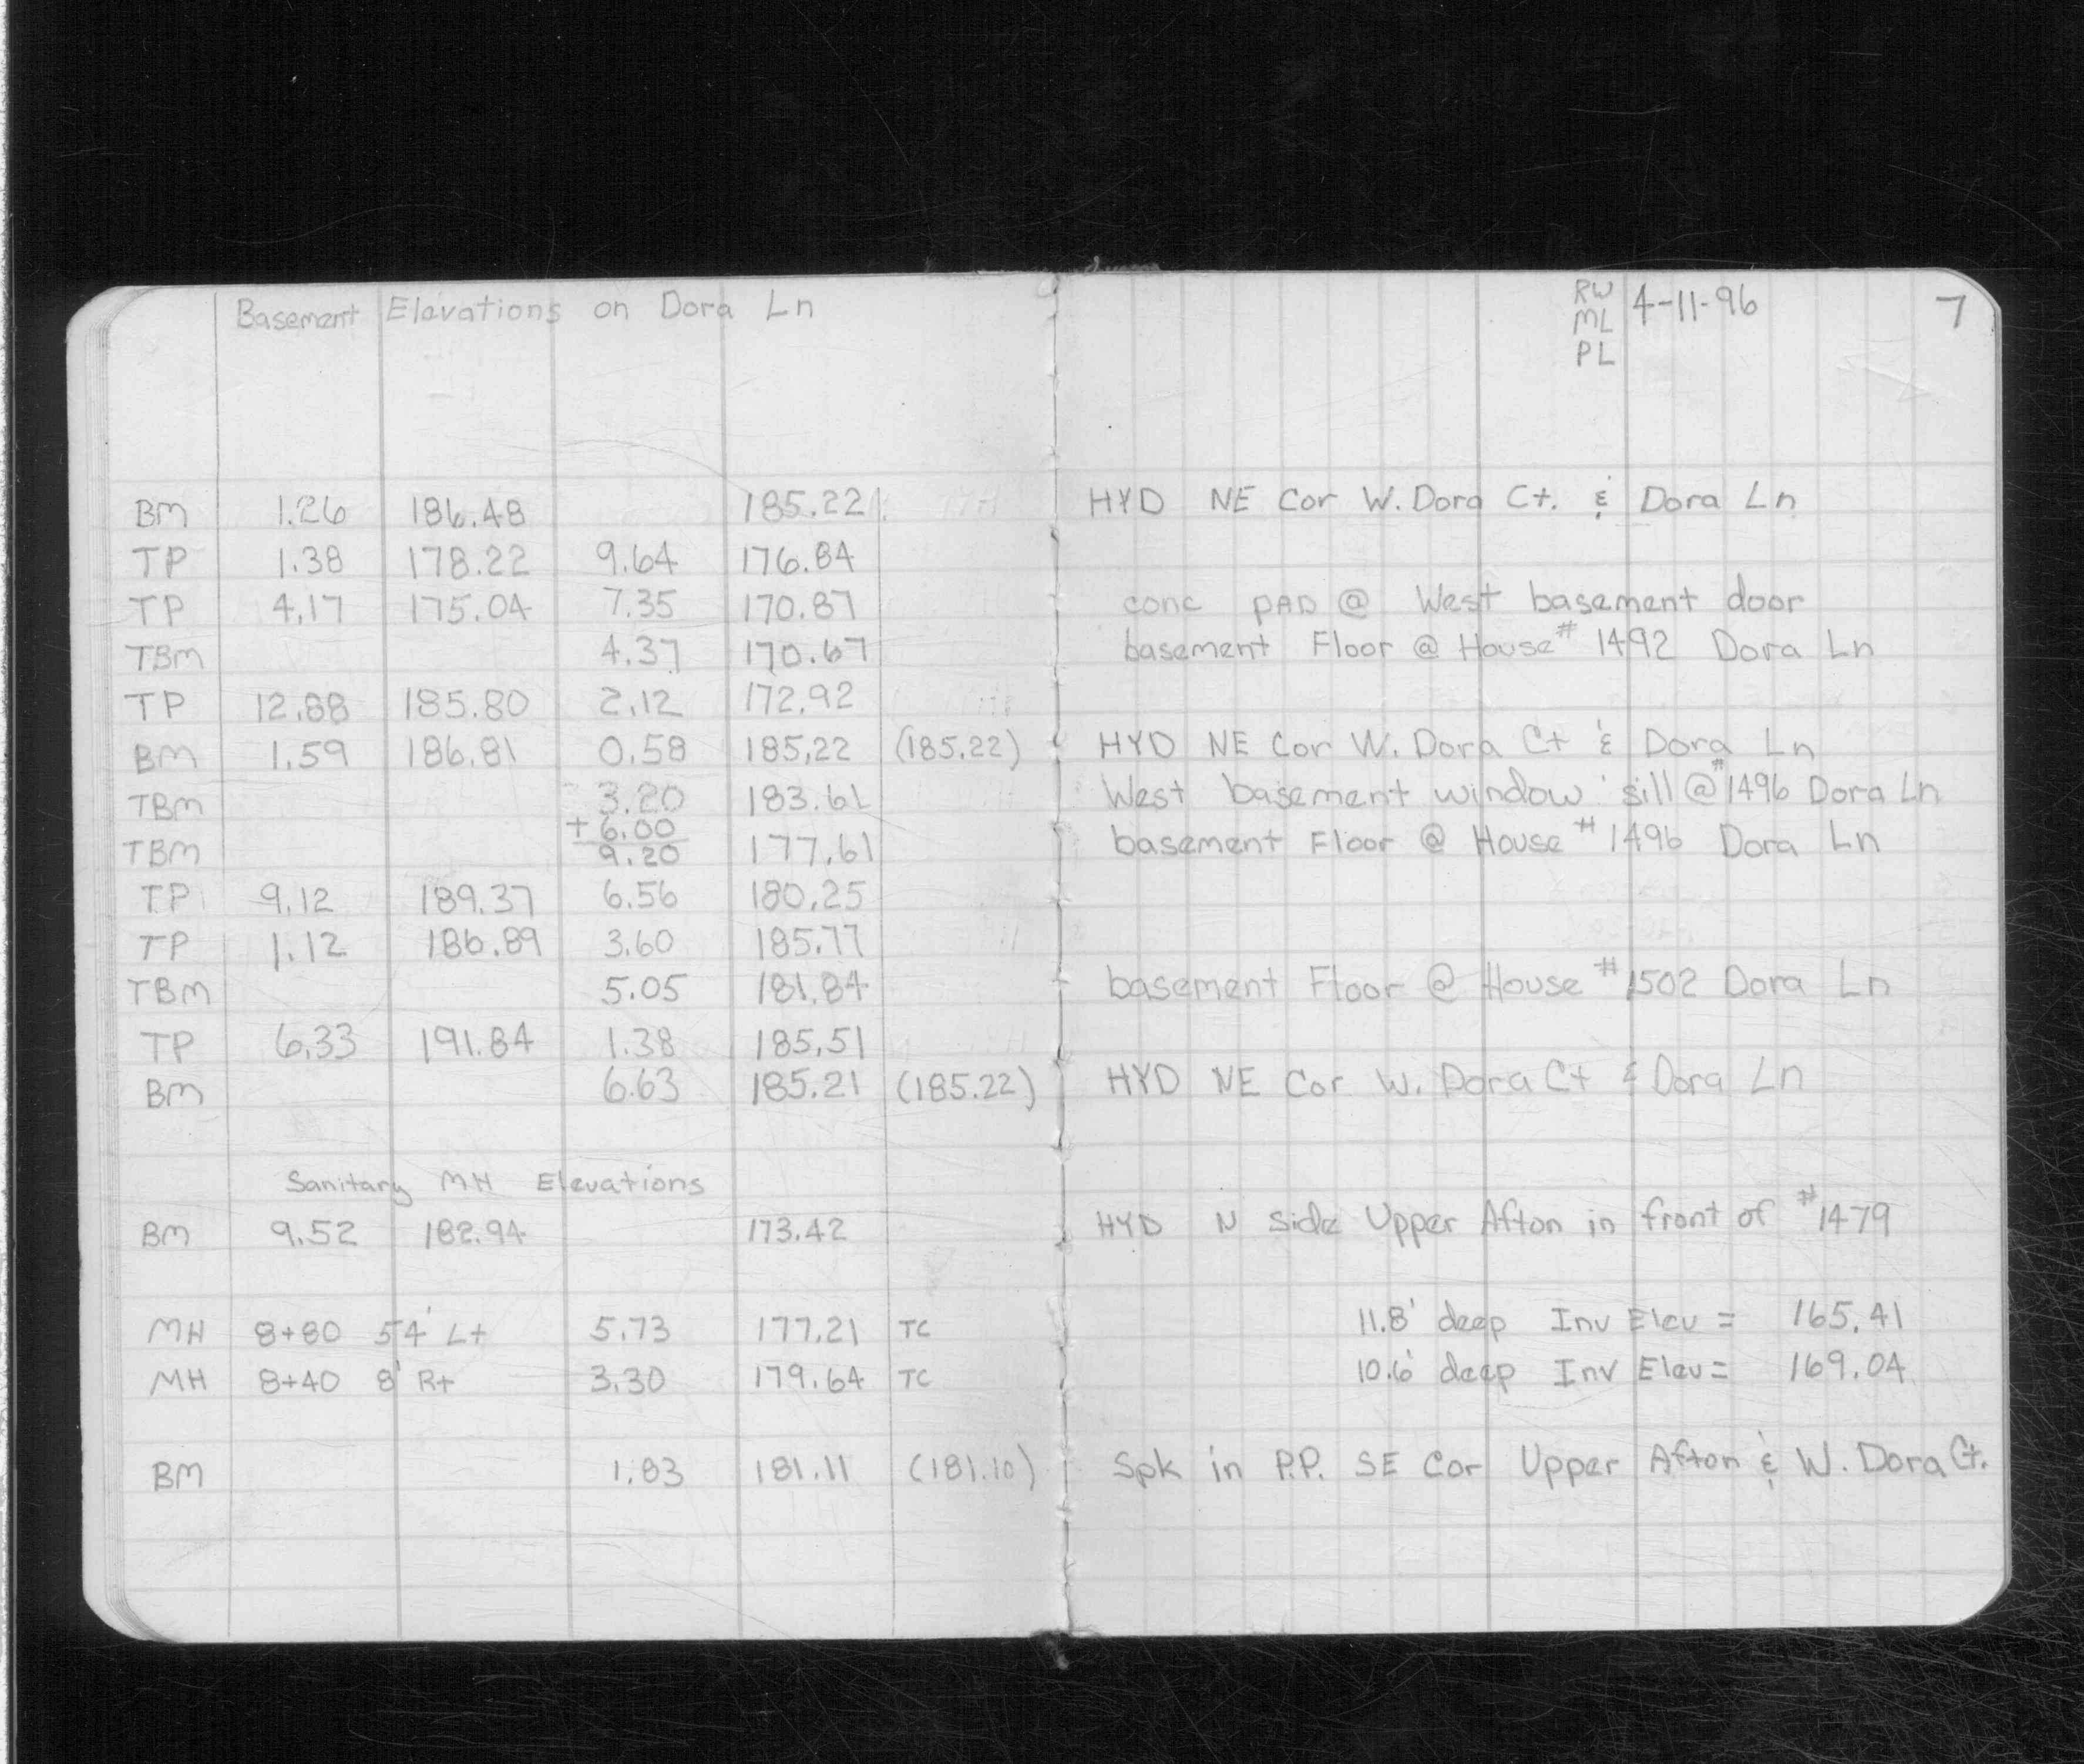 Basement Elevations on Dora Ln RW 4-11-96 7
ML
PL
BM 1.26 186.48 185.22 HYD NE Cor W. Dora Ct. & Dora Ln
TP 1.38 178.22 9.64 176.84
TP 4.17 175.04 7.35 170.87 conc PAD @ West basement door
TBM 4.37 170.67 basement Floor @ House # 1492 Dora Ln
TP 12.88 185.80 2.12 172.92
BM 1.59 186.81 0.58 185.22 (185.22) HYD NE Cor W. Dora Ct & Dora Ln
TBM 3.20 183.61 West basement window sill @ # 1496 Dora Ln
+ 6.00
TBM 9.20 177.61 basement Floor @ House # 1496 Dora Ln
TP 9.12 189.37 6.56 180.25
TP 1.12 186.89 3.60 185.77
TBM 5.05 181.84 basement Floor @ House # 1502 Dora Ln
TP 6.33 191.84 1.38 185.51
BM 6.63 185.21 (185.22) HYD NE Cor W. Dora Ct & Dora Ln
Sanitary MH Elevations
BM 9.52 182.94 173.42 HYD N Side Upper Afton in front of # 1479
MH 8+80 54' Lt 5.73 177.21 TC 11.8' deep Inv Elev = 165.41
MH 8+40 8' Rt 3.30 179.64 TC 10.6' deep Inv Elev = 169.04
BM 1.83 181.11 (181.10) Spk in P.P. SE Cor Upper Afton & W. Dora Ct.